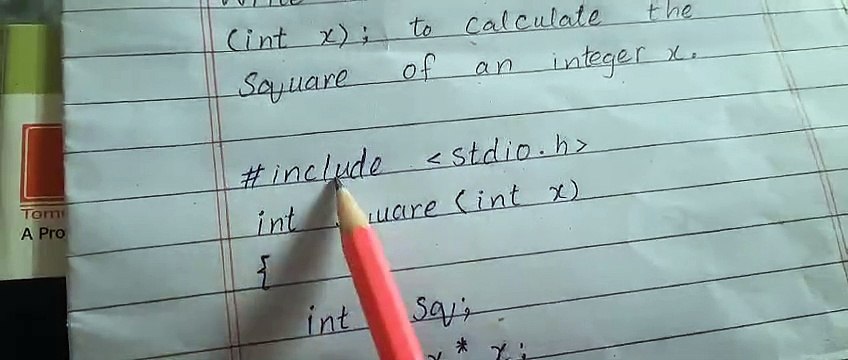 (int x); to calculate the
Square of an integer x.
#include <stdio.h>
int (int x)
{
int sq;
* x;
A Pro